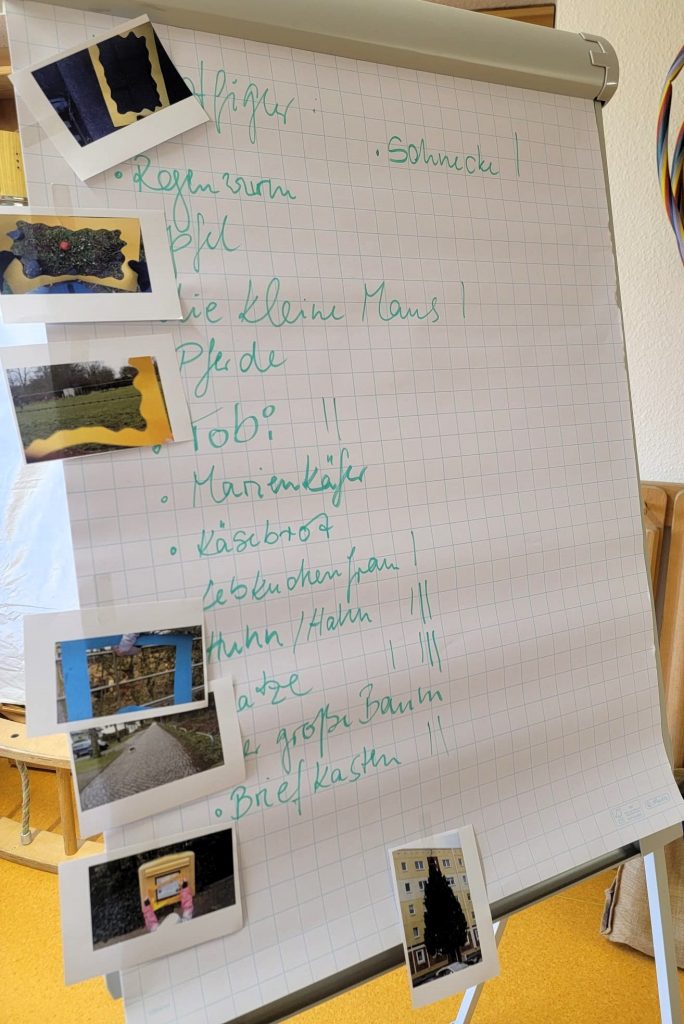 tfigur :
• Schnecke |
• Regenwurm
pfel
die kleine Maus |
Pferde
• Tobi ||
• Marienkäfer
• Käsebrot
Lebkuchenfrau |
Huhn/Hahn |||
atze | |||
er große Baum
• Briefkasten ||